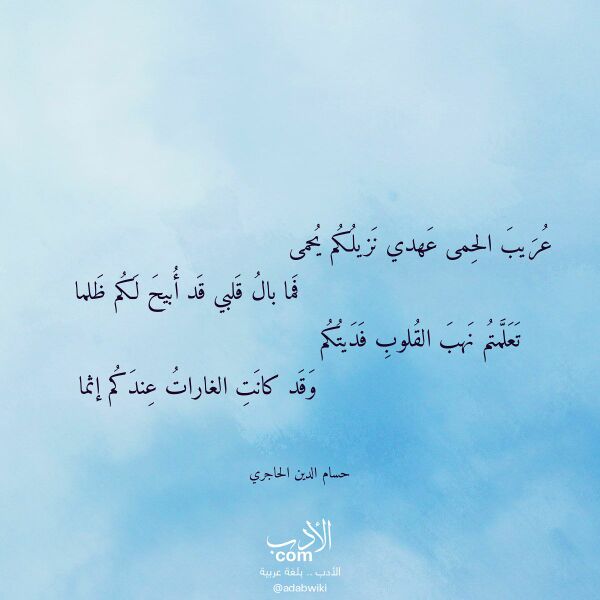 عُرَيبَ الحِمى عَهدي نَزيلُكُم يُحمى
فَما بالُ قَلبي قَد أُبيحَ لَكُم ظَلما
تَعَلَّمتُم نَهبَ القُلوبِ فَدَيتُكُم
وَقَد كانَتِ الغاراتُ عِندَكُم إثما
حسام الدين الحاجري
الأدب
com
الأدب .. بلغة عربية
@adabwiki